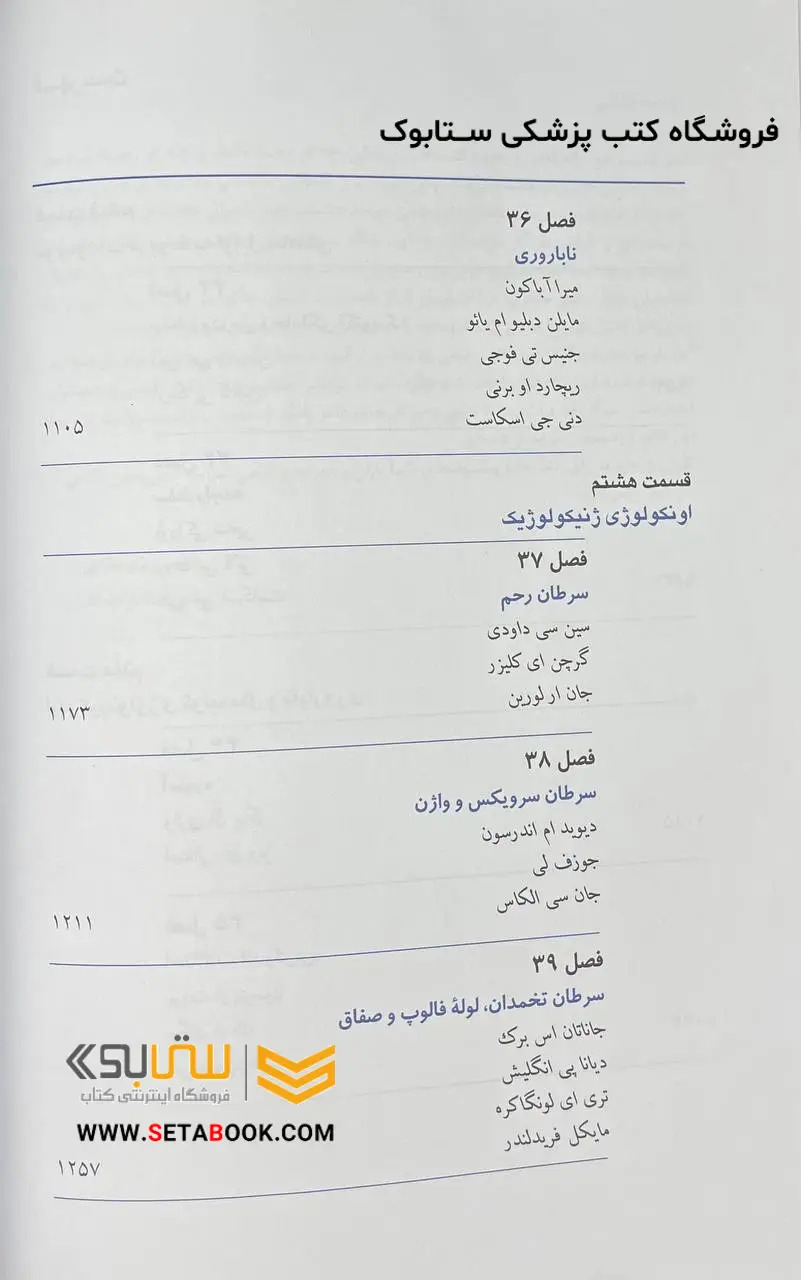 فروشگاه کتب پزشکی ستابوک
فصل ۳۶
ناباروری
میرا آباکون
مایلن دبلیو ام یائو
جنیس تی فوجی
ریچارد او برنی
دنی جی اسکاست
۱۱۰۵
قسمت هشتم
اونکولوژی ژنیکولوژیک
فصل ۳۷
سرطان رحم
سین سی داودی
گرچن ای کلیزر
جان ار لورین
۱۱۷۳
فصل ۳۸
سرطان سرویکس و واژن
دیوید ام اندرسون
جوزف لی
جان سی الکاس
۱۲۱۱
فصل ۳۹
سرطان تخمدان، لولهٔ فالوپ و صفاق
جاناتان اس برک
دیانا پی انگلیش
تری ای لونگاکره
مایکل فریدلندر
۱۲۵۷
ستابوک
فروشگاه اینترنتی کتاب
WWW.SETABOOK.COM